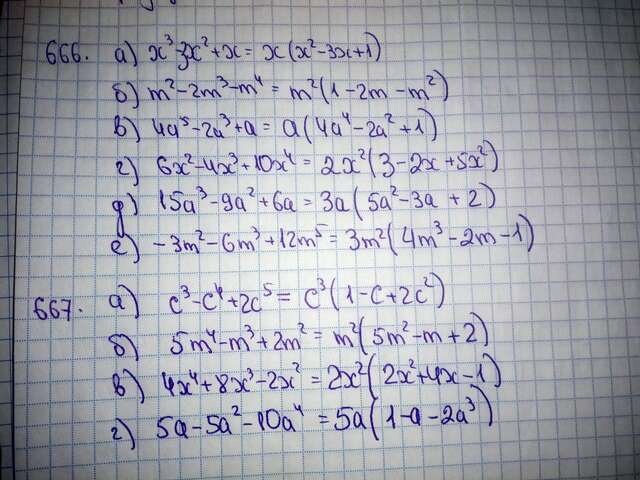 666. а) x³-3x²+x = x(x²-3x+1)
б) m²-2m³-m⁴ = m²(1-2m-m²)
в) 4a⁵-2a³+a = a(4a⁴-2a²+1)
г) 6x²-4x³+10x⁴ = 2x²(3-2x+5x²)
д) 15a³-9a²+6a = 3a(5a²-3a+2)
е) -3m²-6m³+12m⁵ = 3m²(4m³-2m-1)
667. а) c³-c⁴+2c⁵ = c³(1-c+2c²)
б) 5m⁴-m³+2m² = m²(5m²-m+2)
в) 4x⁴+8x³-2x² = 2x²(2x²+4x-1)
г) 5a-5a²-10a⁴ = 5a(1-a-2a³)